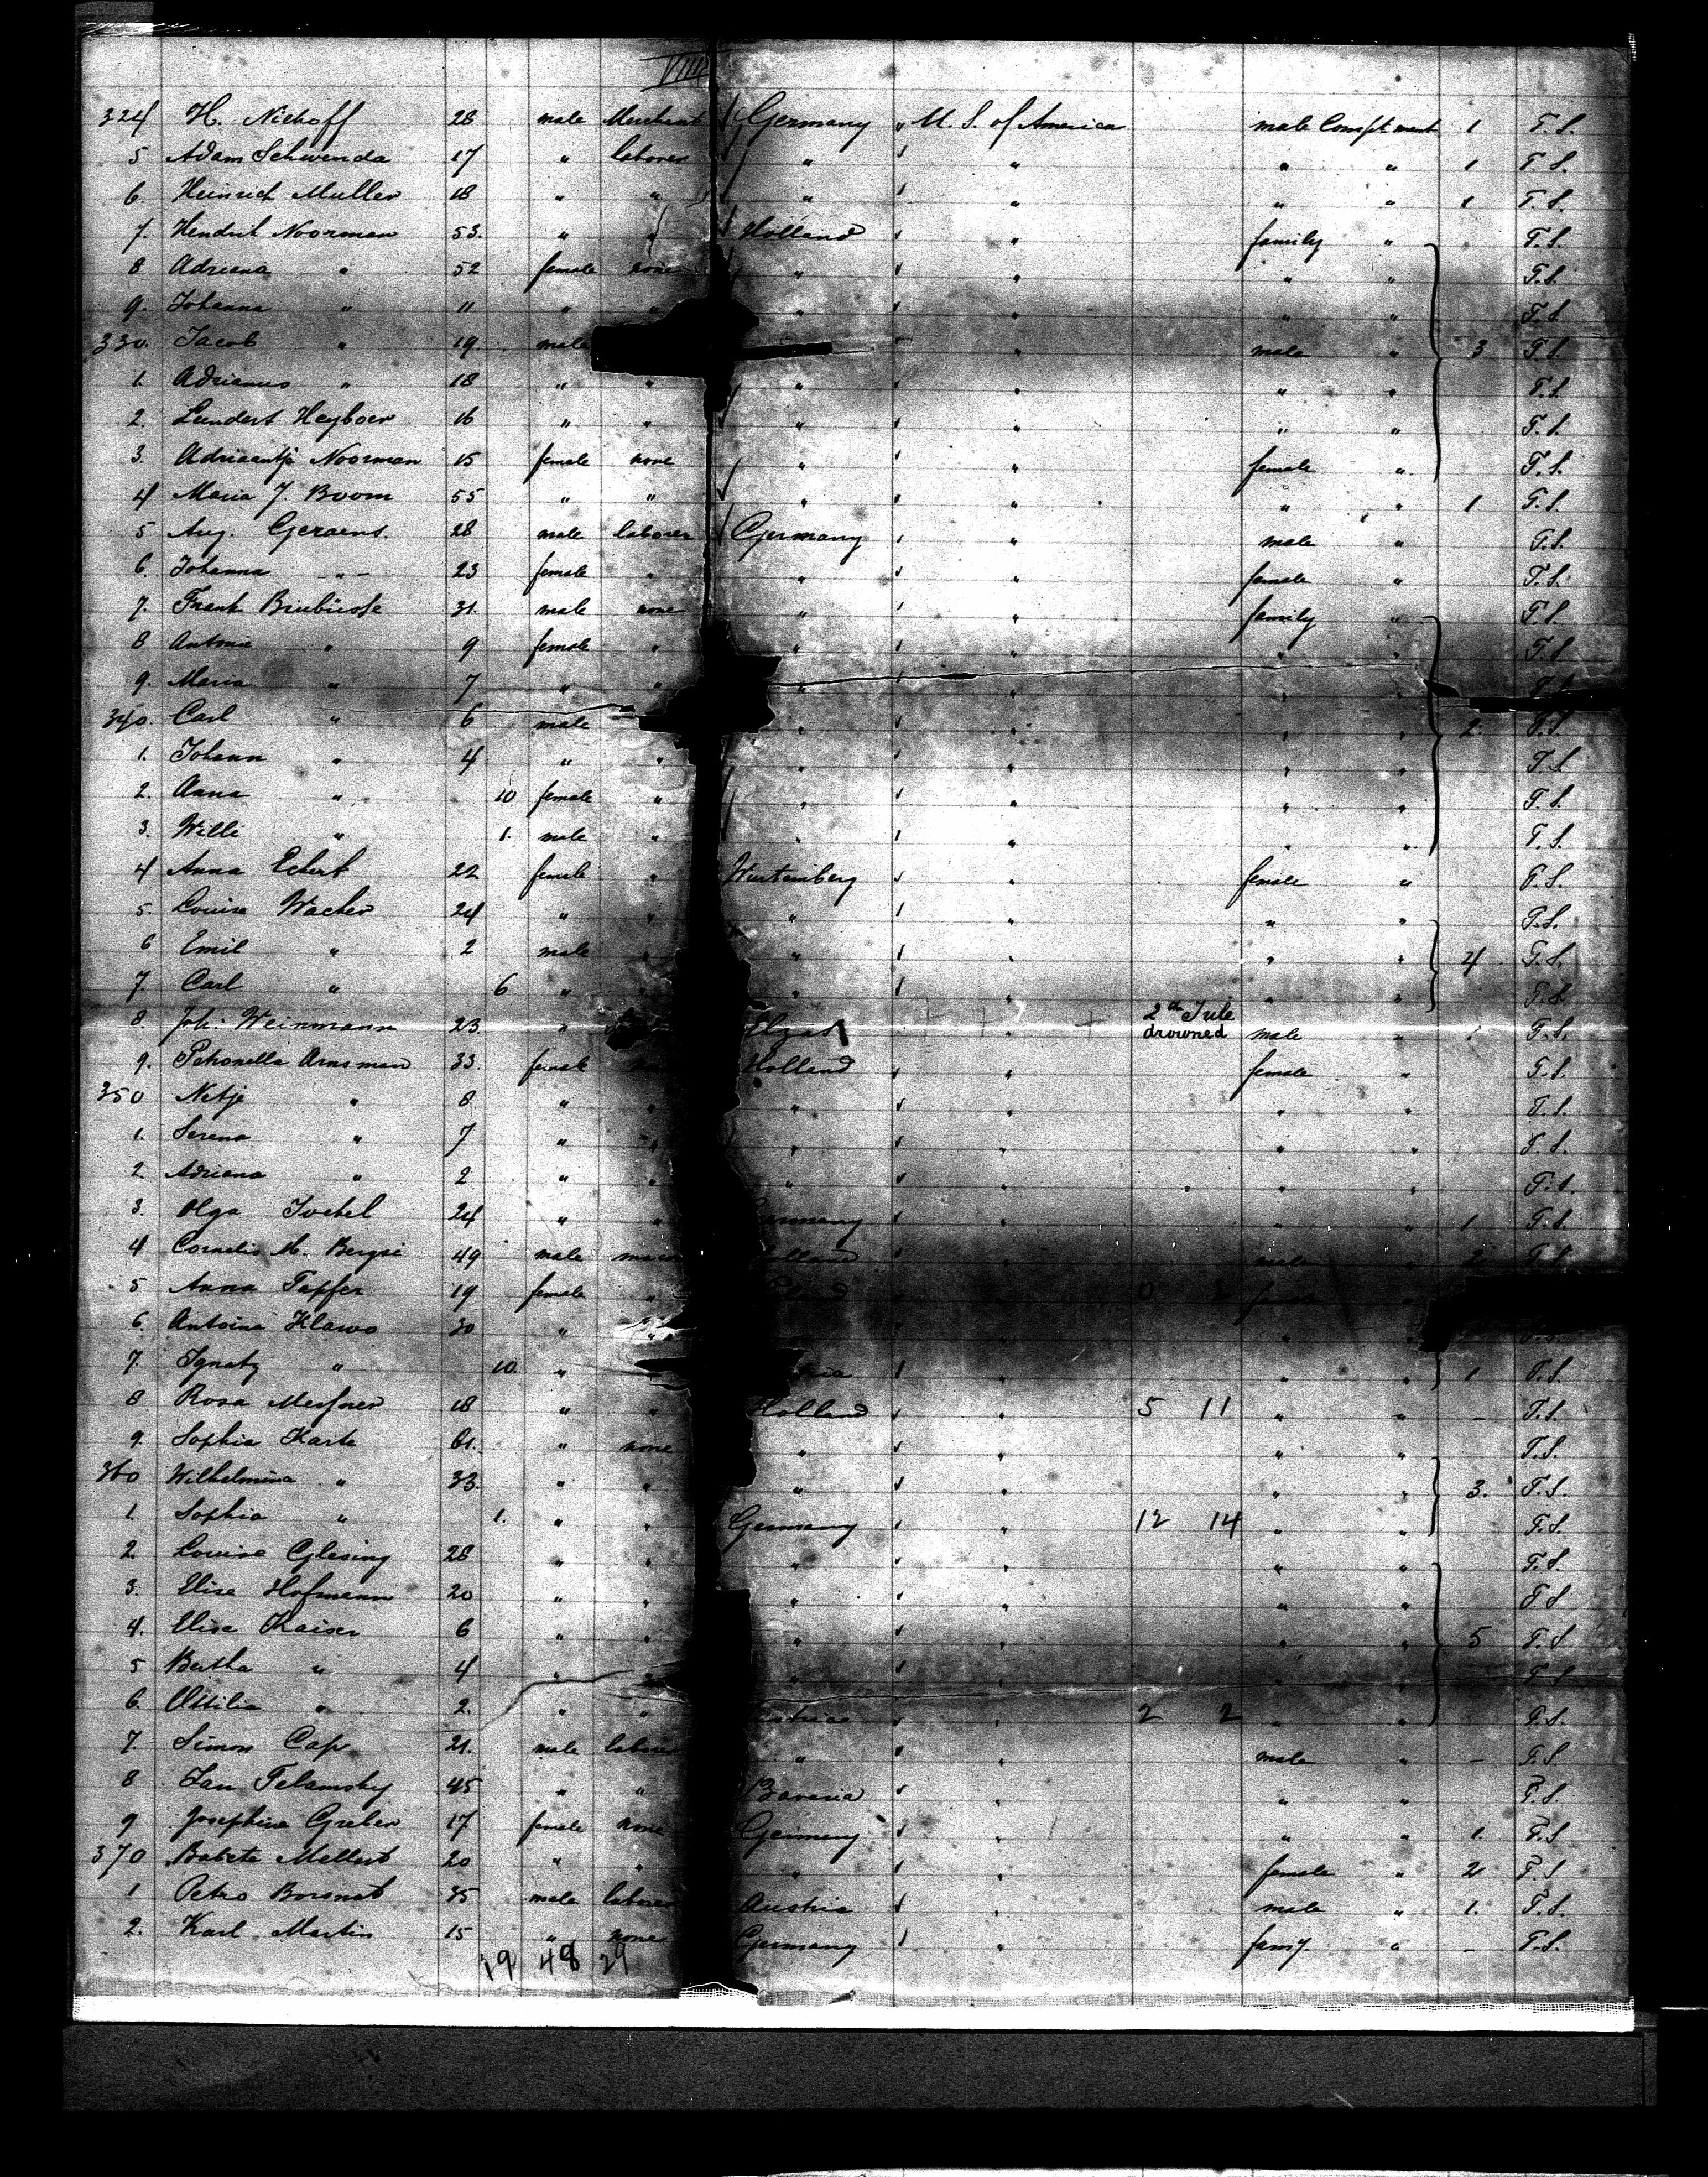 VIIII
324 H. Niehoff 28 male Merchant Germany U. S. of America male Compt ment 1 T. S.
5 Adam Schwenda 17 " laborer " " " " 1 T. S.
6. Heinrich Muller 18 " " " " " " 1 T. S.
7. Hendrik Noorman 53. " " Holland " family " T. S.
8 Adriana " 52 female none " " " " T. S.
9. Johanna " 11 " " " " " " T. S.
330. Jacob " 19 male " male " 3 T. S.
1. Adrianus " 18 " " " " " " T. S.
2. Leendert Heyboer 16 " " " " " " T. S.
3. Adriaantje Noorman 15 female none " " female " T. S.
4 Maria J. Boom 55 " " " " " " 1 T. S.
5 Aug. Geraens. 28 male laborer Germany " male " T. S.
6. Johanna -"- 23 female " " " female " T. S.
7. Frank 31. male none " " family " T. S.
8 Antonie " 9 female " " " " " T. S.
9. Maria " 7 " " " " " " T. S.
340. Carl " 6 male " " " " 2. T. S.
1. Johann " 4 " " " " " " T. S.
2. Anna " 10 female " " " " " T. S.
3. Willi " 1. male " " " " " T. S.
4 Anna Eckert 22 female " Wurtemberg " female " T. S.
5. Louise Wacker 24 " " " " " " T. S.
6 Emil " 2 male " " " " " 4 T. S.
7. Carl " 6 " " " " " T. S.
8. Joh. Weinmann 23. " Elzas " 2th Jule drowned male " T. S.
9. Petronella Arnsman 33. female Holland " female " T. S.
350 Netje " 8 " " " " " " T. S.
1. Serena " 7 " " " " " " T. S.
2. Adriana " 2 " " " " " " T. S.
3. Olga 24 " " Germany " " " 1 T. S.
4 Cornelis M. 49 male Holland " male " 2 T. S.
5 Anna Tapfer 19 female " 0
6. Antoine Klawo 30 " " " " " " T. S.
7. Ignatz " 10. " " " " 1 T. S.
8 Rosa Messner 18 " " Holland " 5 11 " " - T. S.
9. Sophia Karte 61. " none " " " " T. S.
360 Wilhelmina " 33. " " " " " " 3. T. S.
1. Sophia " 1. " " Germany " 12 14 " " T. S.
2. Louise Glesing 28 " " " " " " T. S.
3. Elise Hofmann 20 " " " " " " T. S.
4. Elise Kaiser 6 " " " " " " 5 T. S.
5 Bertha " 4 " " " " " " T. S.
6. Ottilia " 2. " " Austria " 2 2 " " T. S.
7. Simon Cap 21. male laborer " " male " - T. S.
8 Jan Telamsky 45 " " Bavaria " " " T. S.
9 Josephine Greber 17 female none Germany " " " 1. T. S.
370 Babete Mellert 20 " " " " female " 2 T. S.
1 Petro Boronat 35 male laborer Austria " male " 1. T. S.
2. Karl Martin 15 " none Germany " famy. " - T. S.
19 48 29